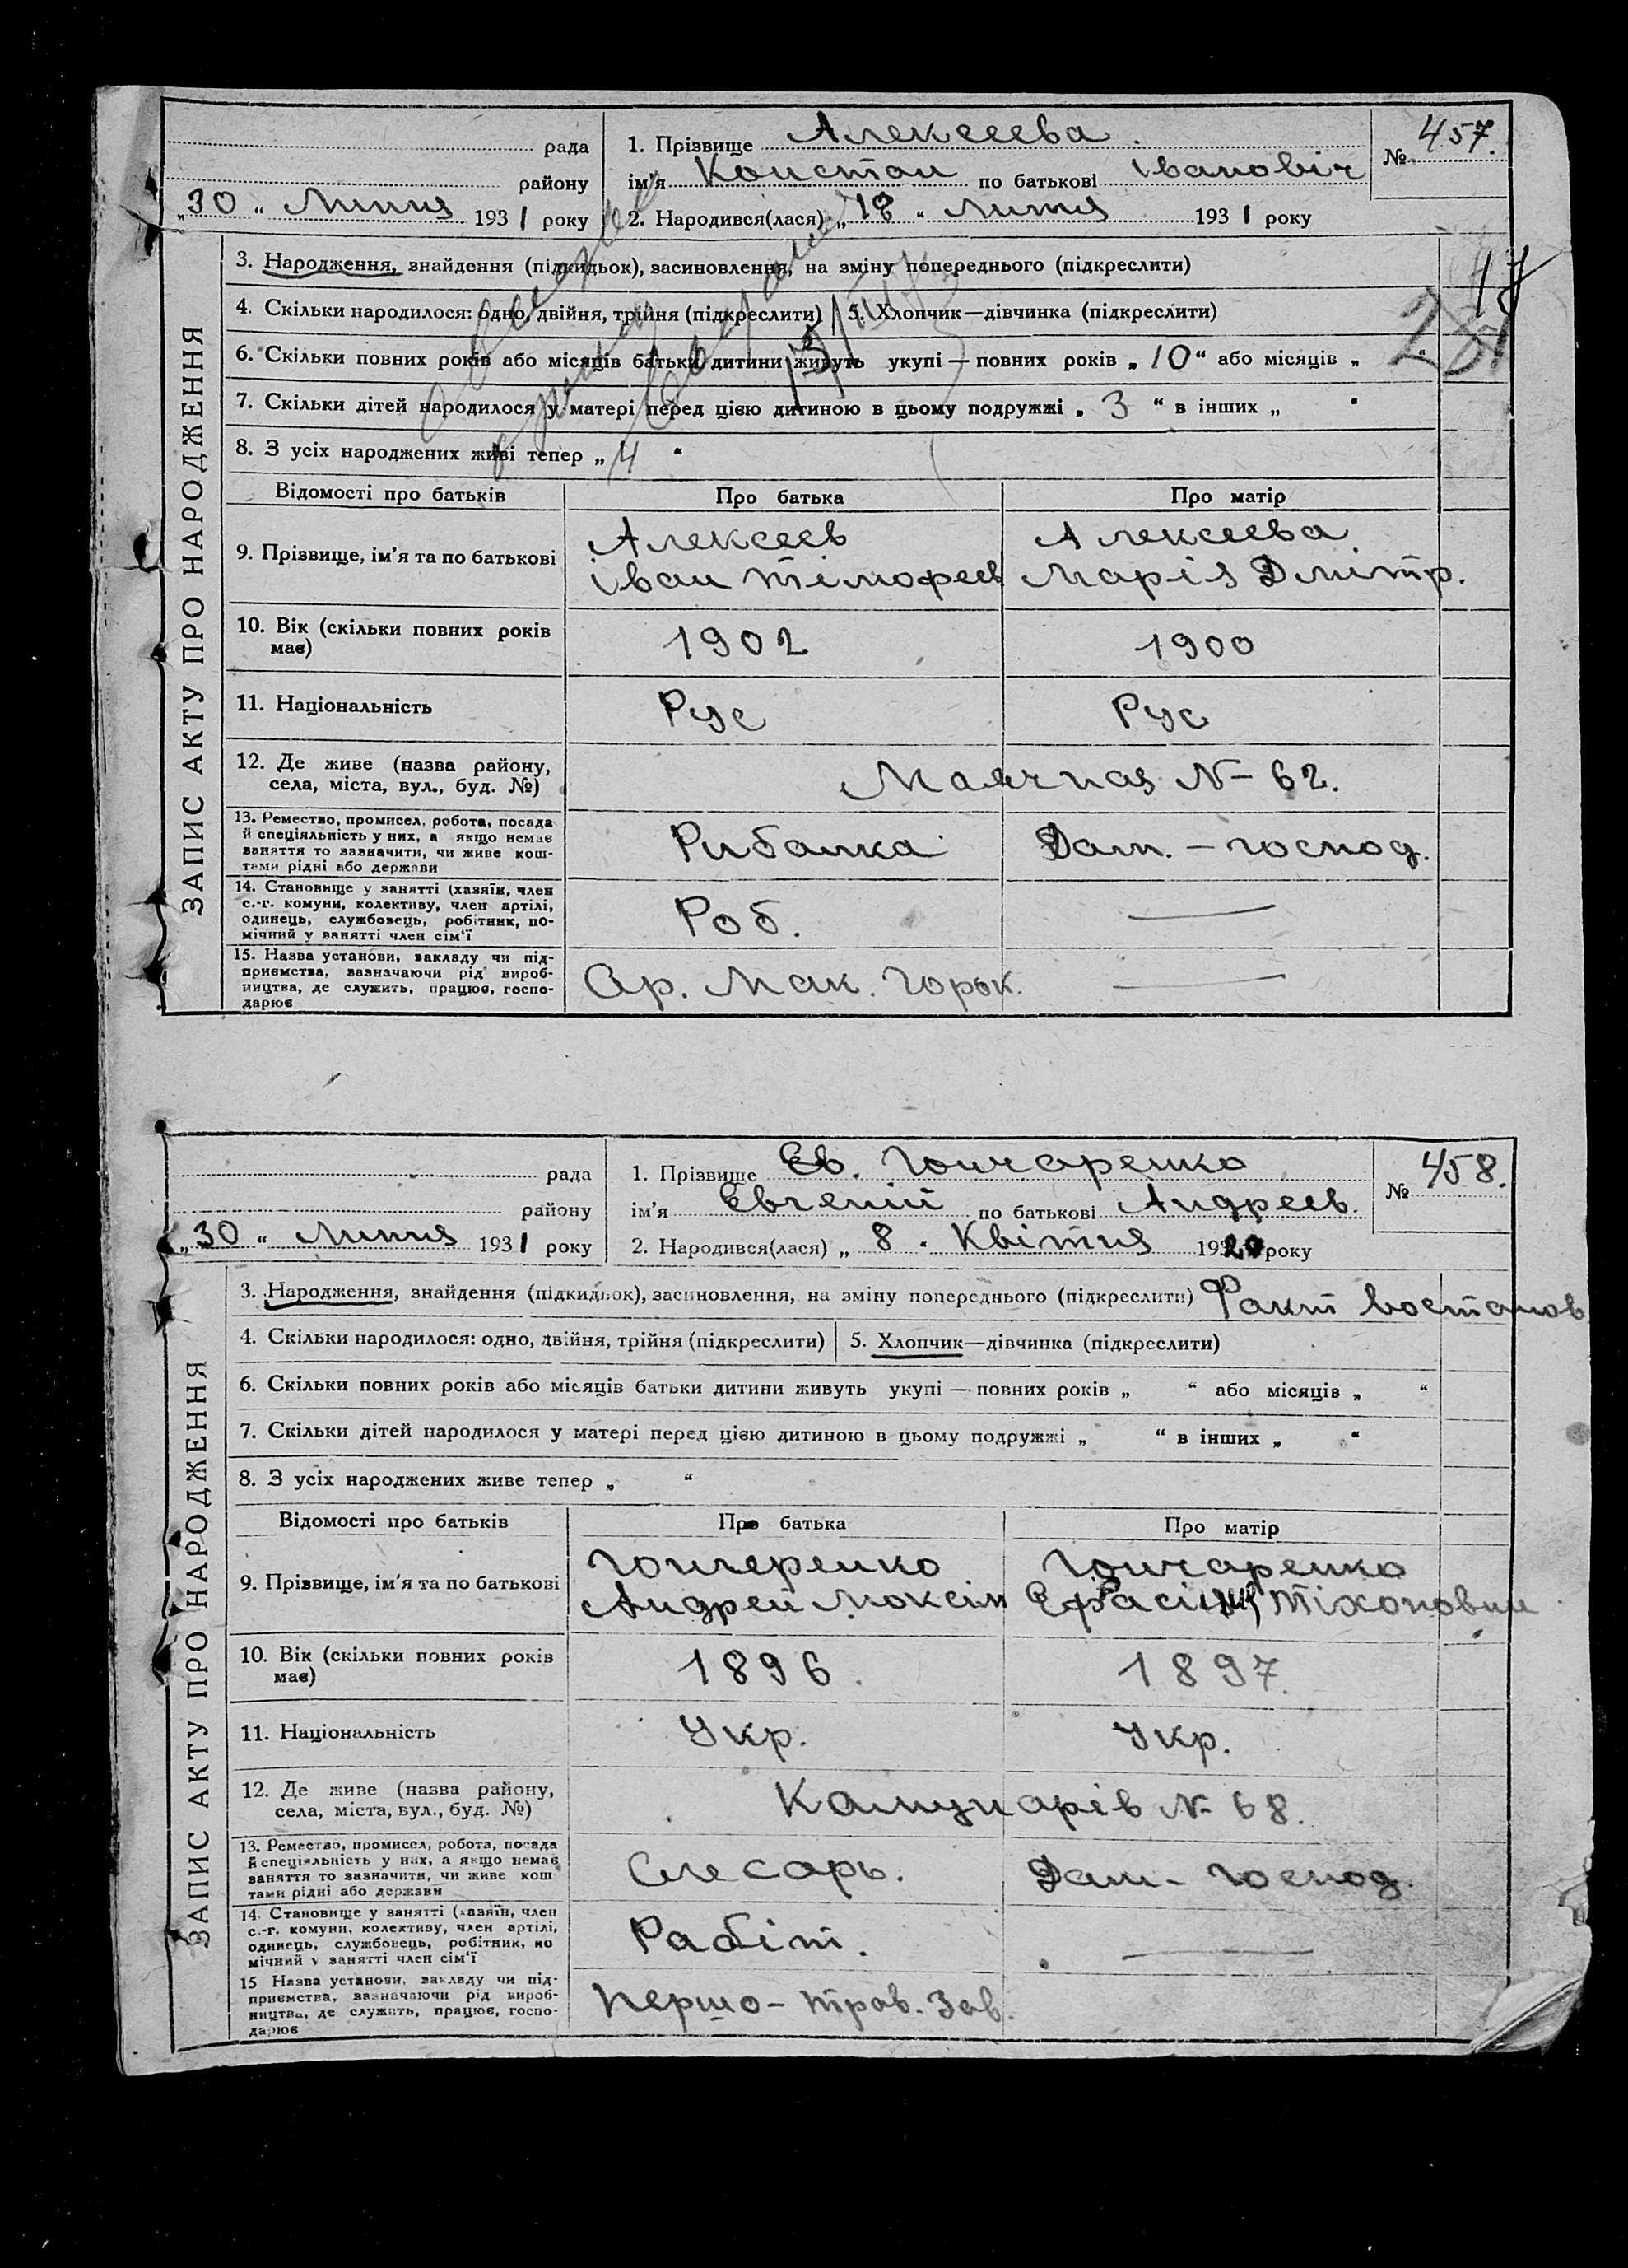 рада
району
„30“ Липня 1931 року
1. Прізвище Алексеева
ім'я Констан по батькові Івановіч
2. Народився(лася) „18“ Липня 1931 року
№ 457.
17
ЗАПИС АКТУ ПРО НАРОДЖЕННЯ
3. Народження, знайдення (підкидьок), засиновлення, на зміну попереднього (підкреслити)
4. Скільки народилося: одно, двійня, трійня (підкреслити) 5. Хлопчик—дівчинка (підкреслити)
6. Скільки повних років або місяців батьки дитини живуть укупі — повних років „10“ або місяців „ “
7. Скільки дітей народилося у матері перед цією дитиною в цьому подружжі „3“ в інших „ “
8. З усіх народжених живі тепер „4“
Відомості про батьків Про батька Про матір
9. Прізвище, ім'я та по батькові
Алексеев
Іван Тімофеев
Алексеева
Марія Дмітр.
10. Вік (скільки повних років
має)
1902 1900
11. Національність Рус Рус
12. Де живе (назва району,
села, міста, вул., буд. №)
Маячная № 62.
13. Ремество, промисел, робота, посада
й спеціяльність у них, а якщо немає
заняття то зазначити, чи живе кош-
тами рідні або держави
Рибалка Дом. – господ.
14. Становище у занятті (хазяїн, член
с.-г. комуни, колективу, член артілі,
одинець, службовець, робітник, по-
мічний у занятті член сім'ї
Роб. —
15. Назва установи, закладу чи під-
приємства, зазначаючи рід вироб-
ництва, де служить, працює, госпо-
дарює
Ар. Мак. Горьк. —
рада
району
„30“ Липня 1931 року
1. Прізвище Ев. Гончаренко
ім'я Євгеній по батькові Андреев.
2. Народився(лася) „8“ Квітня 1920 року
№ 458.
ЗАПИС АКТУ ПРО НАРОДЖЕННЯ
3. Народження, знайдення (підкидьок), засиновлення, на зміну попереднього (підкреслити) Факт востанов
4. Скільки народилося: одно, двійня, трійня (підкреслити) 5. Хлопчик—дівчинка (підкреслити)
6. Скільки повних років або місяців батьки дитини живуть укупі — повних років „ “ або місяців „ “
7. Скільки дітей народилося у матері перед цією дитиною в цьому подружжі „ “ в інших „ “
8. З усіх народжених живе тепер „ “
Відомості про батьків Про батька Про матір
9. Прізвище, ім'я та по батькові
Гончеренко
Андрей Максім
Гончаренко
Тіхоновна
10. Вік (скільки повних років
має)
1896. 1897.
11. Національність Укр. Укр.
12. Де живе (назва району,
села, міста, вул., буд. №)
Камунарів № 68.
13. Ремество, промисел, робота, посада
й спеціяльність у них, а якщо немає
заняття то зазначити, чи живе кош-
тами рідні або держави
Слесарь. Дом- господ.
14. Становище у занятті (хазяїн, член
с.-г. комуни, колективу, член артілі,
одинець, службовець, робітник, по
мічний у занятті член сім'ї
Рабіт. —
15 Назва установи, закладу чи під-
приємства, зазначаючи рід вироб-
ництва, де служить, працює, госпо-
дарює
Першо – трав. Зав.